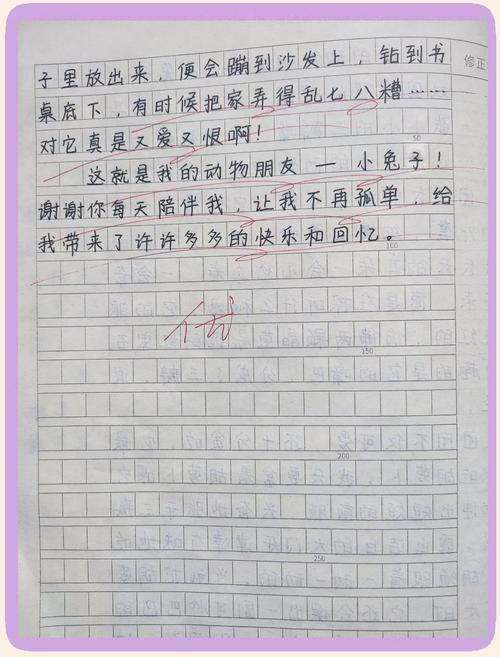 修正
子里放出来，便会蹦到沙发上，钻到书
桌底下，有时候把家弄得乱七八糟……
对它真是又爱又恨啊！
50
这就是我的动物朋友 — 小兔子！
谢谢你每天陪伴我，让我不再孤单，给
我带来了许许多多的快乐和回忆。
100
优
150
200
250